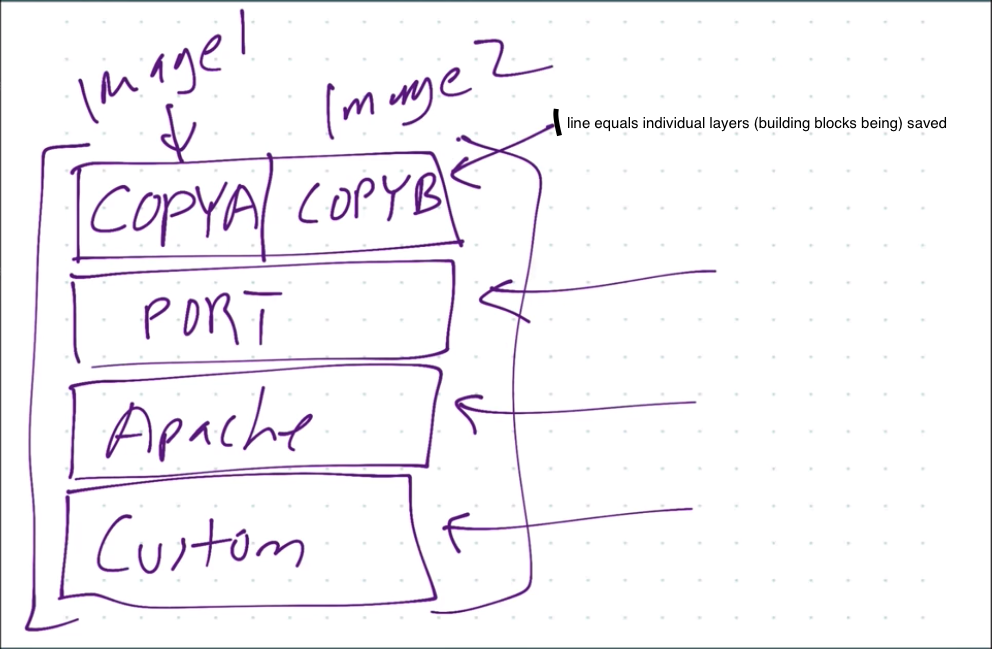 Image1
Image2
line equals individual layers (building blocks being) saved
COPYA COPYB
PORT
Apache
Custom